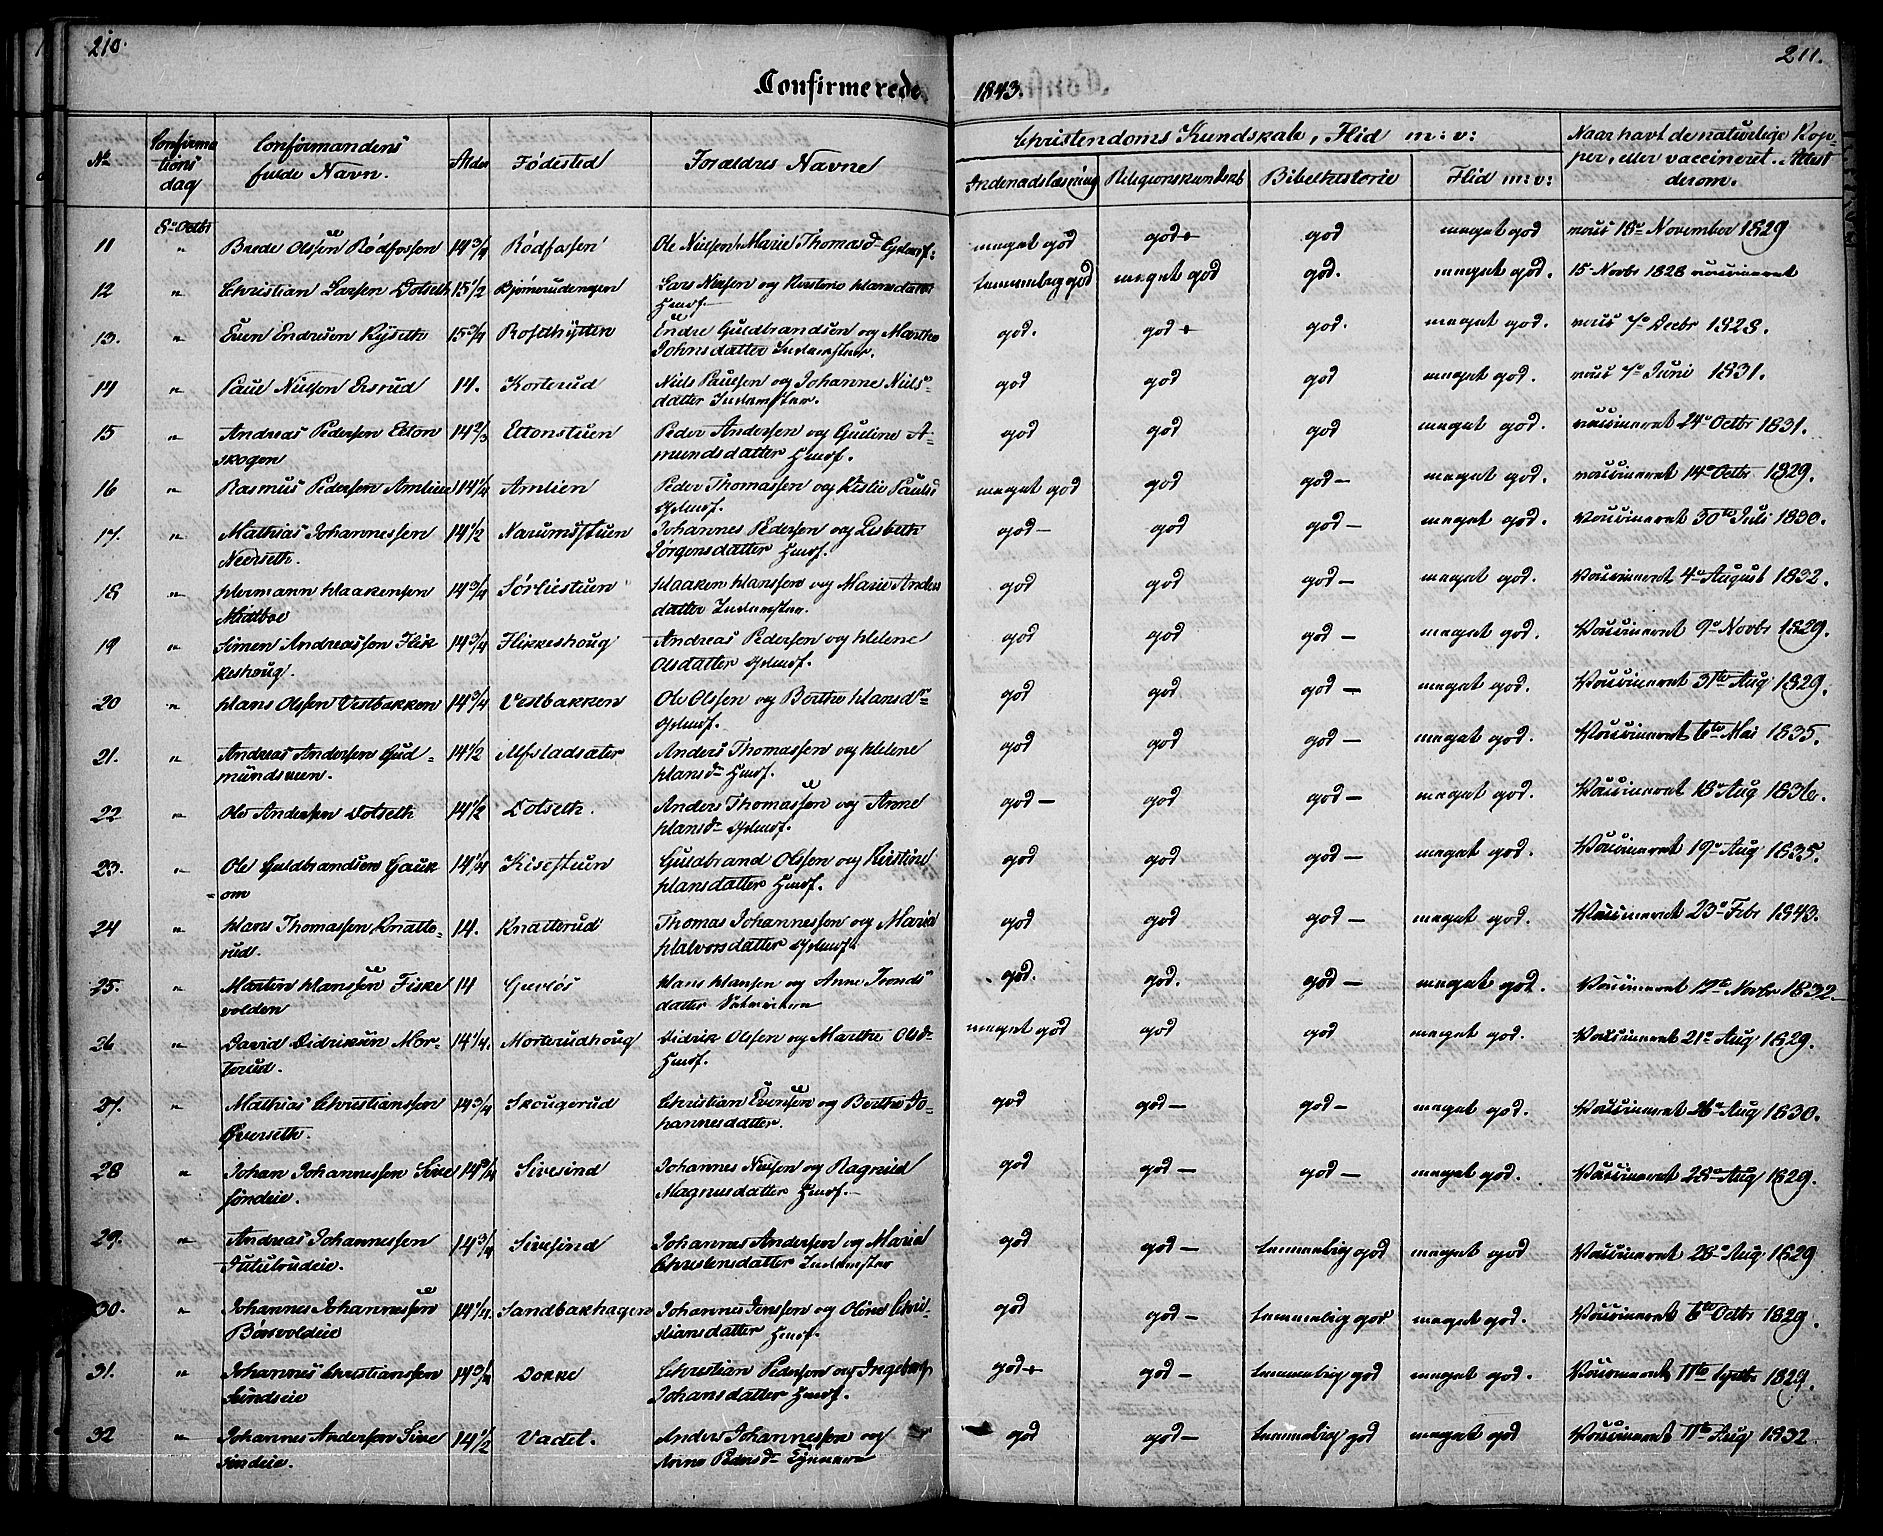 210.
211.
Confirmerede 1843.
Christendoms Kundskab, Flid m: v:
No
Confirmationsdag
Confirmandens fulde Navn.
Alder
Fødested
Forældres Navne
Indenadslæsning
Religionskundskab
Bibelhistorie
Flid m: v:
Naar havt de naturlige Kopper, eller vaccineret. Attest derom.
8de Octbr
11 " Brede Olssen Rødfossen 14 3/4 Rødfossen Ole Nielsen, Marie Thomasd. Gaardf: meget god god+ god meget god vacc 18de November 1829
12 " Christian Larsen Dolseth 15 1/2 Bjørnerudengen Lars Nielsen og Kirstine Hansdatter Huusf. temmelig god meget god god. meget god. 15 Novbr 1828 vaccineret
13. " Even Endresen Ryseth 15 3/4 Endre Guldbrandsen og Marthe Johnsdatter Inderster. god. god+ god. meget god. vacc 7de Decbr 1828.
14 " Paul Nielsen 14. Korterud Niels Paulsen og Johanne Nielsdatter Inderster. god god god meget god. vacc 7de Juni 1831.
15 " Andreas Pedersen Etton skogen 14 2/3 Ettonstuen Peder Andersen og Guline Amundsdatter Huusf. god god god meget god. vaccineret 24de Octbr 1831.
16 " Rasmus Pedersen Amlien 14 1/4 Amlien Peder Thomassen og Kislie Paulsd meget god god god- meget god. vaccineret 14de Octbr 1829.
17. " Mathias Johannessen Neerseth. 14 1/2 Narumsstuen Johannes Pedersen og Lisbeth Jørgensdatter Huusf. god- god god- meget god. Vaccineret 30te Juli 1830.
18 " Hermann Haakensen Midtbøe 14 3/4 Sørliestuen Haaken Hanssen og Marie Andersdatter Inderster. god god god- meget god. Vaccineret 4de August 1832.
19 " Simen Andreassen Flikkeshoug. 14 3/4 Flikkeshoug Andreas Pedersen og Helene Olsdatter god god god- meget god. Vaccineret 9de Novbr 1829.
20 " Hans Olssen Vestbakken 14 3/4 Vestbakken Ole Olssen og Berthe Hansdr god god god- meget god. Vaccineret 31te Aug 1829.
21. " Andreas Andersen Gudmundsveen. 14 1/2 Alfstadsæter Anders Thomassen og Helene Hansdr Huusf. god god god- meget god. Vaccineret 6te Mai 1835.
22 " Ole Andersen Dolseth 14 1/2 Dolseth. Anders Thomassen og Anne Hansdr god- god god- meget god. Vaccineret 18de Aug 1836.
23. " Ole Guldbrandsen Gaukom 14 1/4 Kisestuen Guldbrand Olssen og Kirstine Hansdatter Huusf. god god god- meget god. Vaccineret 19de Aug 1835.
24 " Hans Thomassen Knatterud. 14. Knatterud Thomas Johannessen og Maria Halvorsdatter god god god- meget god. Vaccineret 23de Febr 1843.
25. " Martin Hanssen Fiskevolden 14 Hans Hansen og Anne Trondsdatter god. god. god- meget god. Vaccineret 12te Novbr 1832
26 " David Didriksen Morterud. 14 1/4. Morterudhoug Didrik Olssen og Marthe Olsd Huusf. meget god god god meget god. Vaccineret 21de Aug 1829.
27. " Mathias Christianssen Øverseth. 14 3/4 Skougerud Christian Evensen og Berthe Johannesdatter. god god- god- meget god. Vaccineret 26de Aug 1830.
28 " Johan Johannessen Sivesindeie. 14 3/4 Sivesind Johannes Nielsen og Ragnild Magnusdatter Huusf. god god- god- meget god. Vaccineret 28de Aug 1829.
29. " Andreas Johannessen Jutulrudeie. 14 3/4 Sivesind Johannes Andersen og Maria Christensdatter Inderster god god- temmelig god meget god Vaccineret 28de Aug 1829
30. " Johannes Johannessen Børsvoldeie 14 1/4. Sandbakhagen Johannes Jenssen og Oline Christiansdatter Huusf. god god- temmelig god meget god. Vaccineret 6te Octbr 1829.
31. " Johannes Christianssen 14 3/4 Dokke Christian Pedersen og Ingeborg Johansdatter Huusf. god+ god- temmelig god meget god. Vaccineret 11te Septbr 1829.
32 " Johannes Andersen Sivesindeie. 14 1/2 Vadet. Anders Johannessen og Anne Pedersdr god god- temmelig god meget god Vaccineret 11te Aug 1832